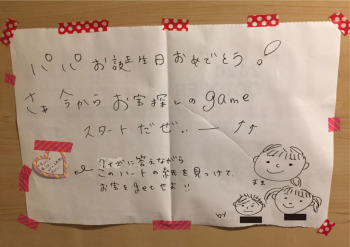 パパお誕生日おめでとう!
さぁ 今から お宝探しのgame
スタートだぜぃ ー ↑↑
なぞなぞに答えながら
このハートの紙を見つけて
お宝をgetせよ!!
by